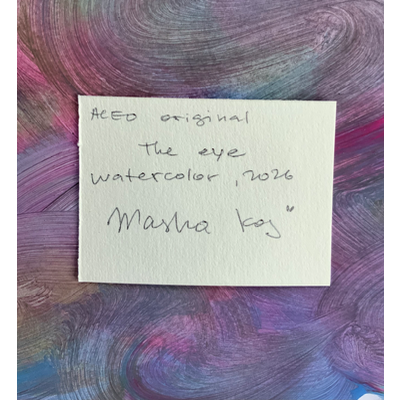 ACEO original
The eye
watercolor, 2026
Masha Koy"